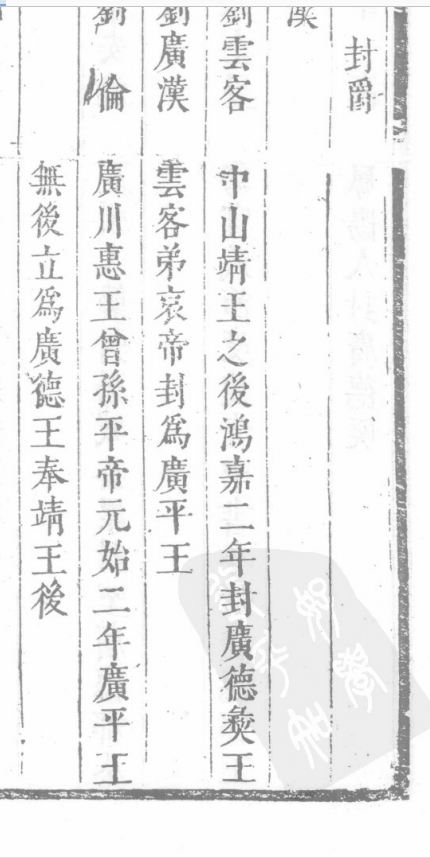 封爵
漢
劉雲客 中山靖王之後鴻嘉二年封廣德夷王
劉廣漢 雲客弟哀帝封爲廣平王
劉倫 廣川惠王曾孫平帝元始二年廣平王
無後立爲廣德王奉靖王後